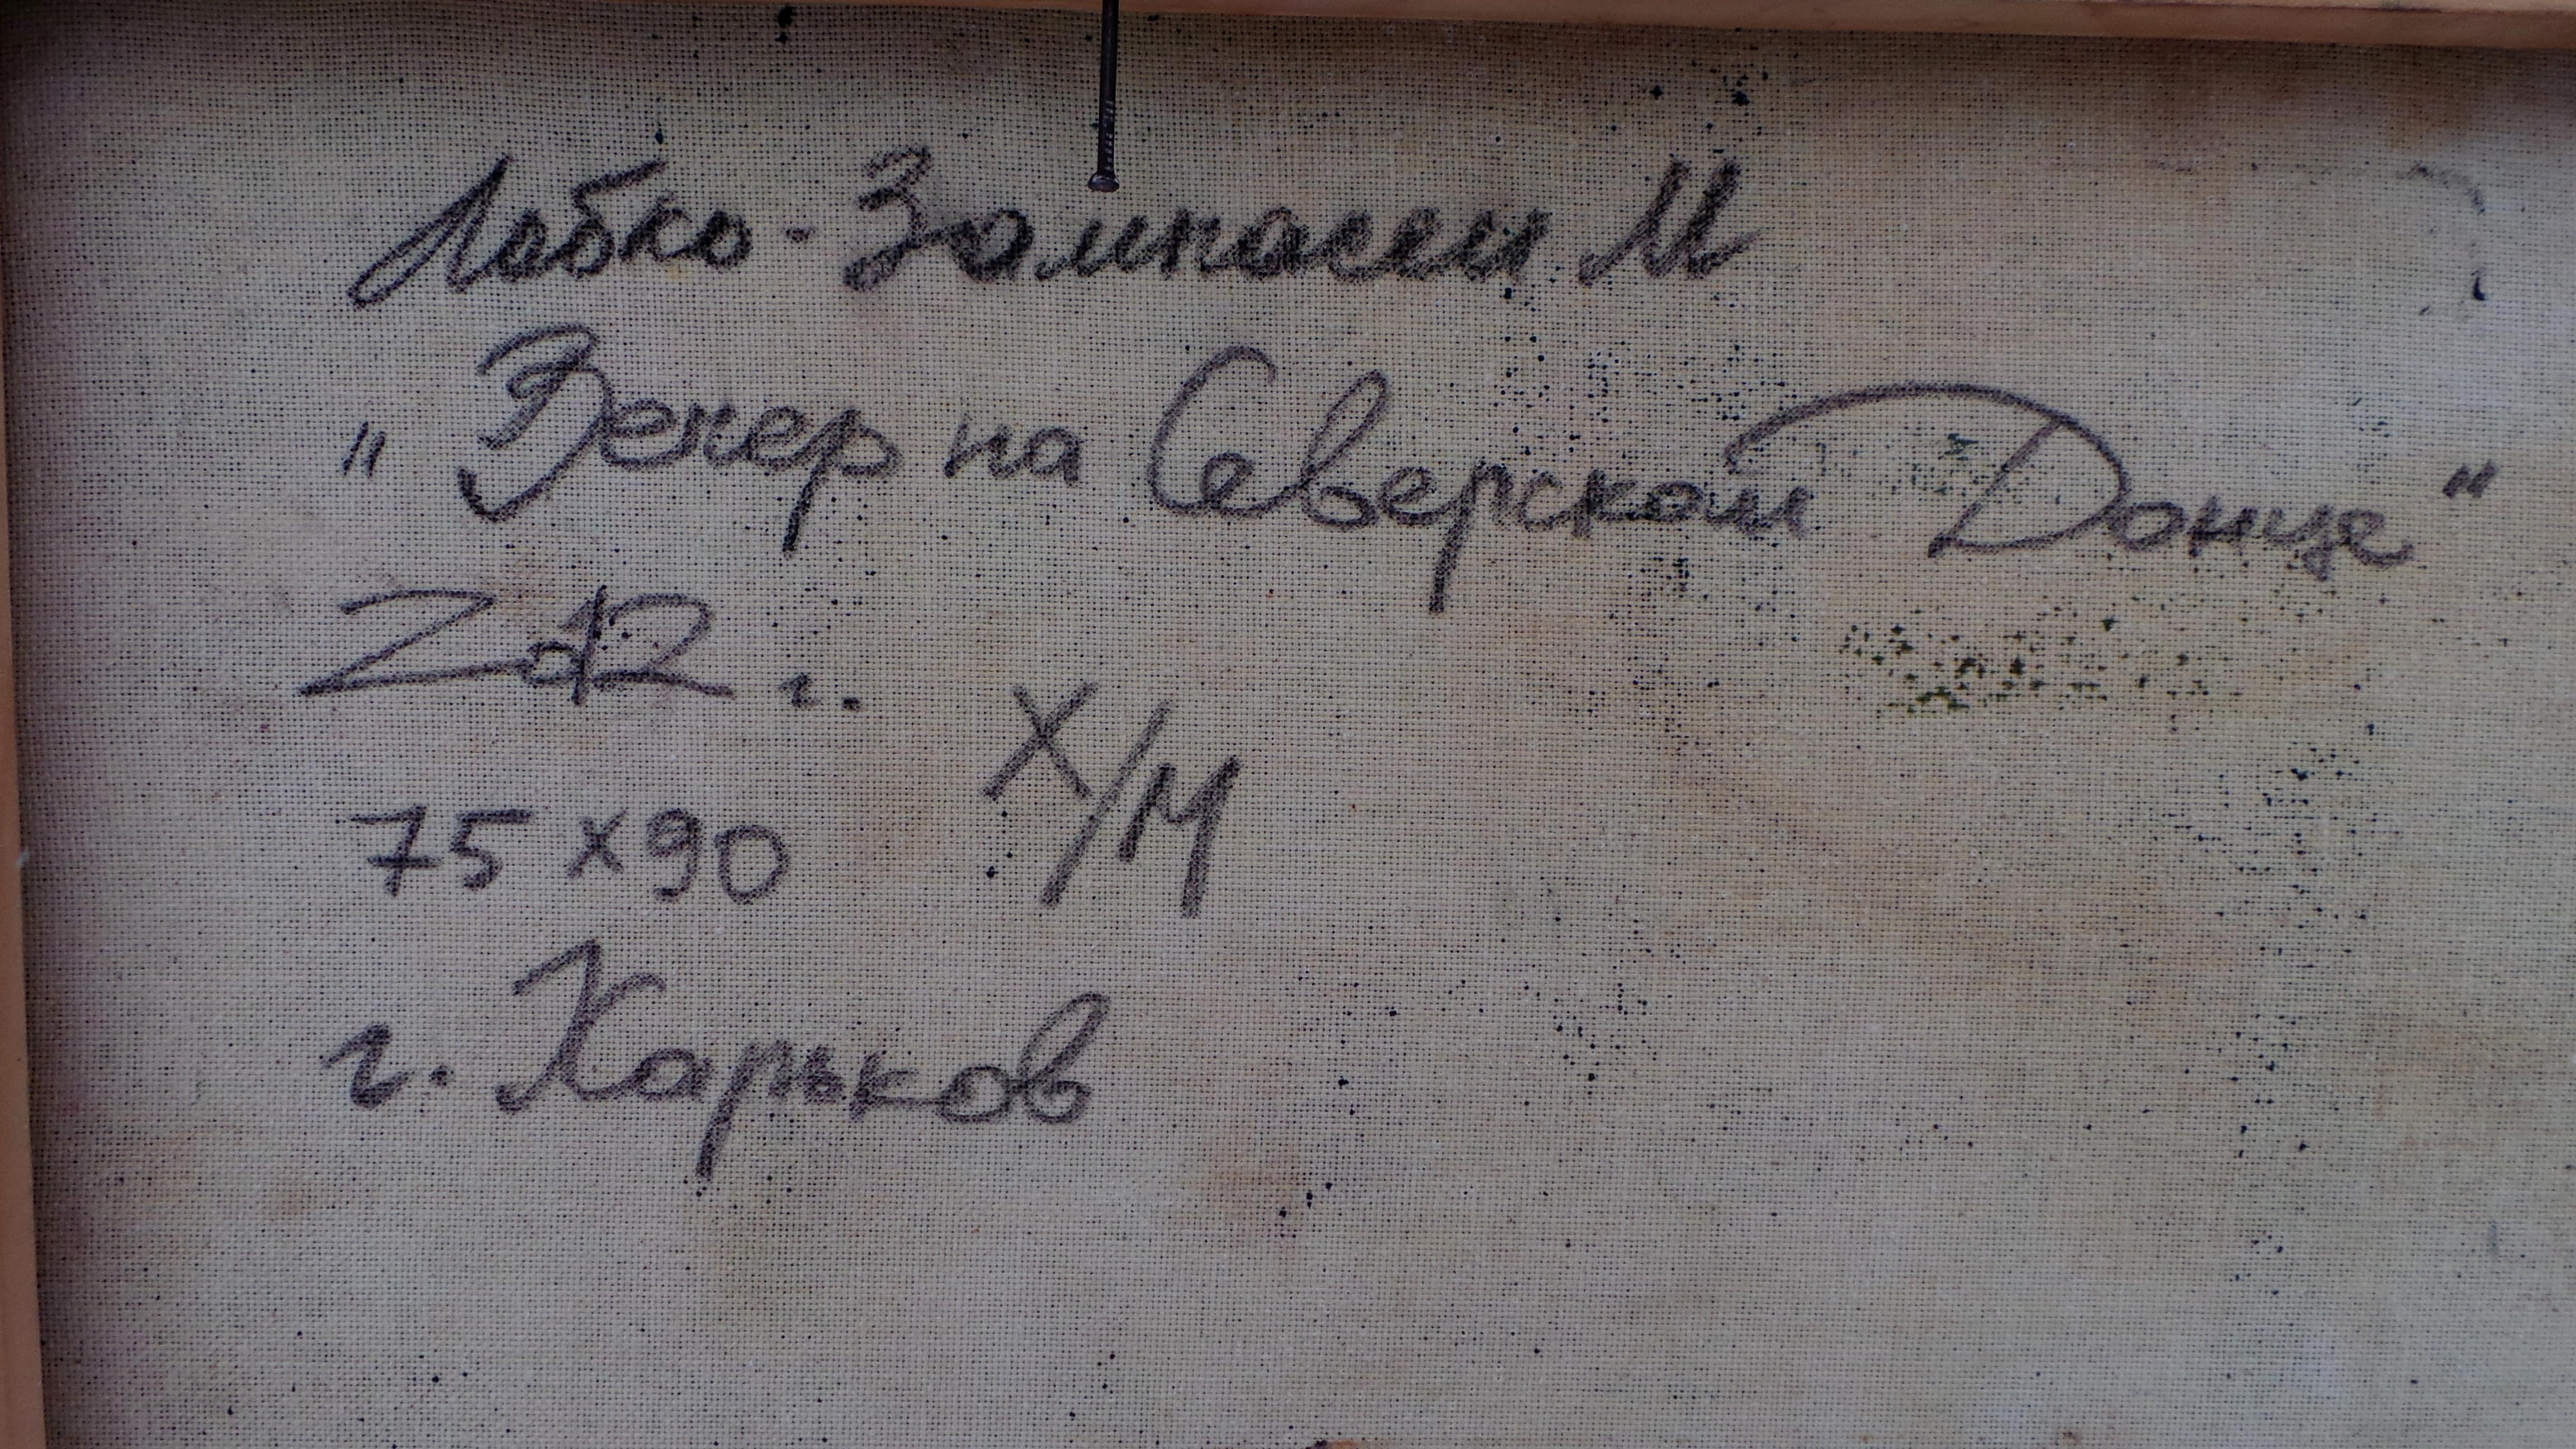 Лобко-Зампасен М
"Вечер на Северском Донце"
2012 г.
Х/М
75 х 90
г. Харьков